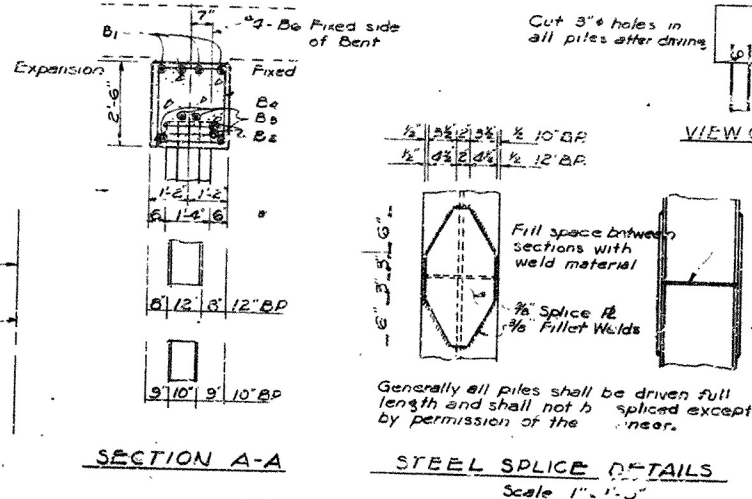 7"
#4-B6 Fixed side
of Bent
B1
Expansion
Fixed
2'-6"
B4
B3
B2
1'-2" 1'-2"
6 1'-4" 6"
8" 12" 8" 12" B.P.
9" 10" 9" 10" B.P.
SECTION A-A
Cut 3"ϕ holes in
all piles after driving
6"
VIEW
1/2" 3 1/2" 2" 3 1/2" 1/2 10" B.P.
1/2" 4 1/2" 2" 4 1/2" 1/2 12" B.P.
6" 3" 3" 6"
Fill space between
sections with
weld material
3/8" Splice PL
3/8" Fillet Welds
Generally all piles shall be driven full
length and shall not b spliced except
by permission of the neer.
STEEL SPLICE DETAILS
Scale 1"